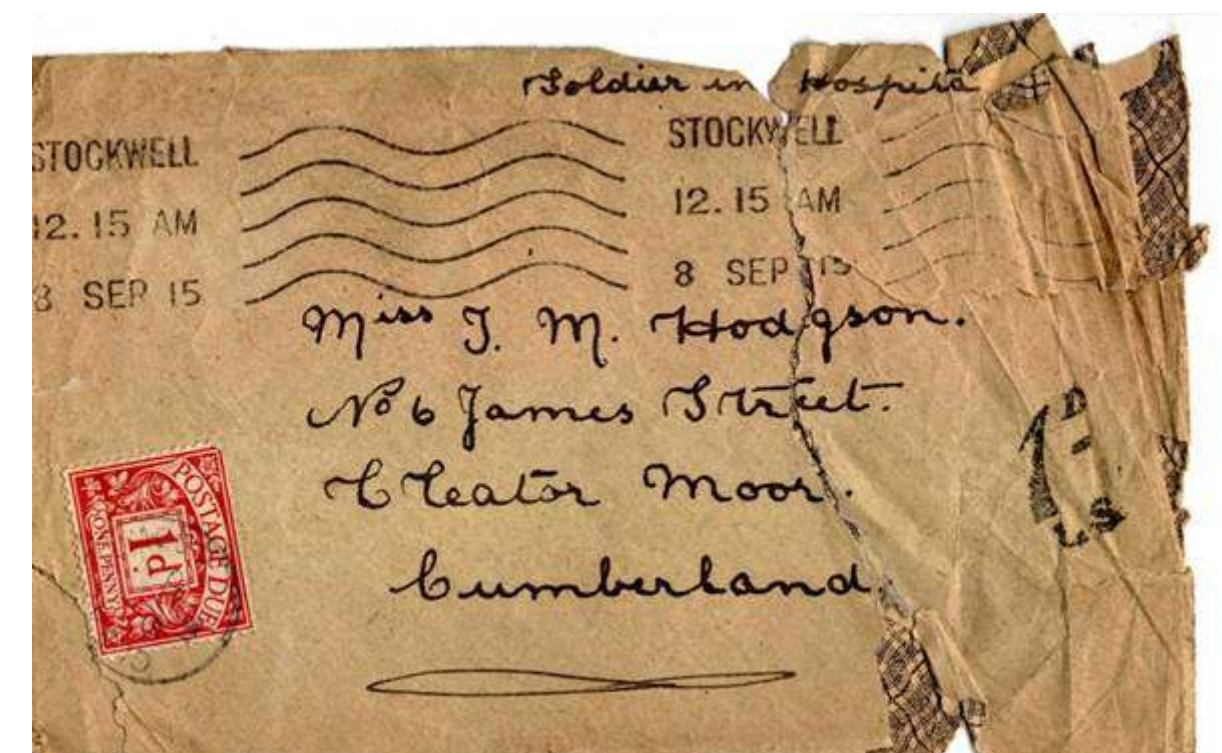 Soldier in Hospita
STOCKWELL
12.15 AM
8 SEP 15
STOCKWELL
12.15 AM
8 SEP 15
Miss J. M. Hodgson.
No 6 James Street.
Cleator Moor.
Cumberland.
POSTAGE DUE
1d
ONE PENNY
1D